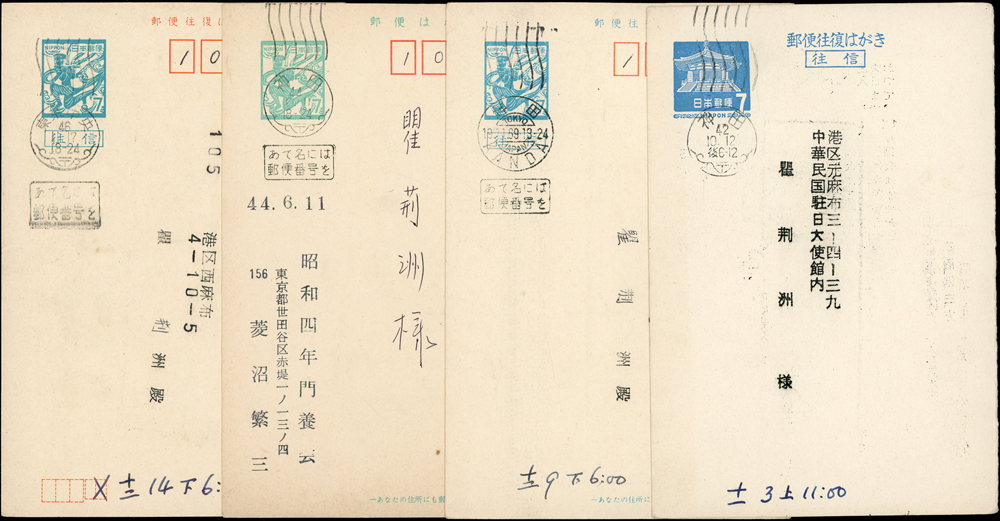 郵便往復は
NIPPON 日本郵便
7
往信
1 0
46
18-24
あて名には
郵便番号を
105
港区西麻布
4-10-5
洲 殿
十三 14 下 6:
郵便は
NIPPON 日本郵便
7
1 0
あて名には
郵便番号を
44.6.11
瞿荊洲様
昭和四年門養云
156
東京都世田谷区赤堤一ノ一三ノ四
菱沼繁三
ーあなたの住所にも郵
郵便往
NIPPON 日本郵便
7
往信
1
TOKYO
JAPAN
あて名には
郵便番号を
瞿 荊 洲 殿
十二 9 下 6:00
ーあなたの住所に
郵便往復はがき
往信
日本郵便 7
NIPPON
42
10.12
後6-12
港区元麻布三ー四ー三九
中華民国駐日大使館内
瞿 荆 洲 様
十一 3 上 11:00